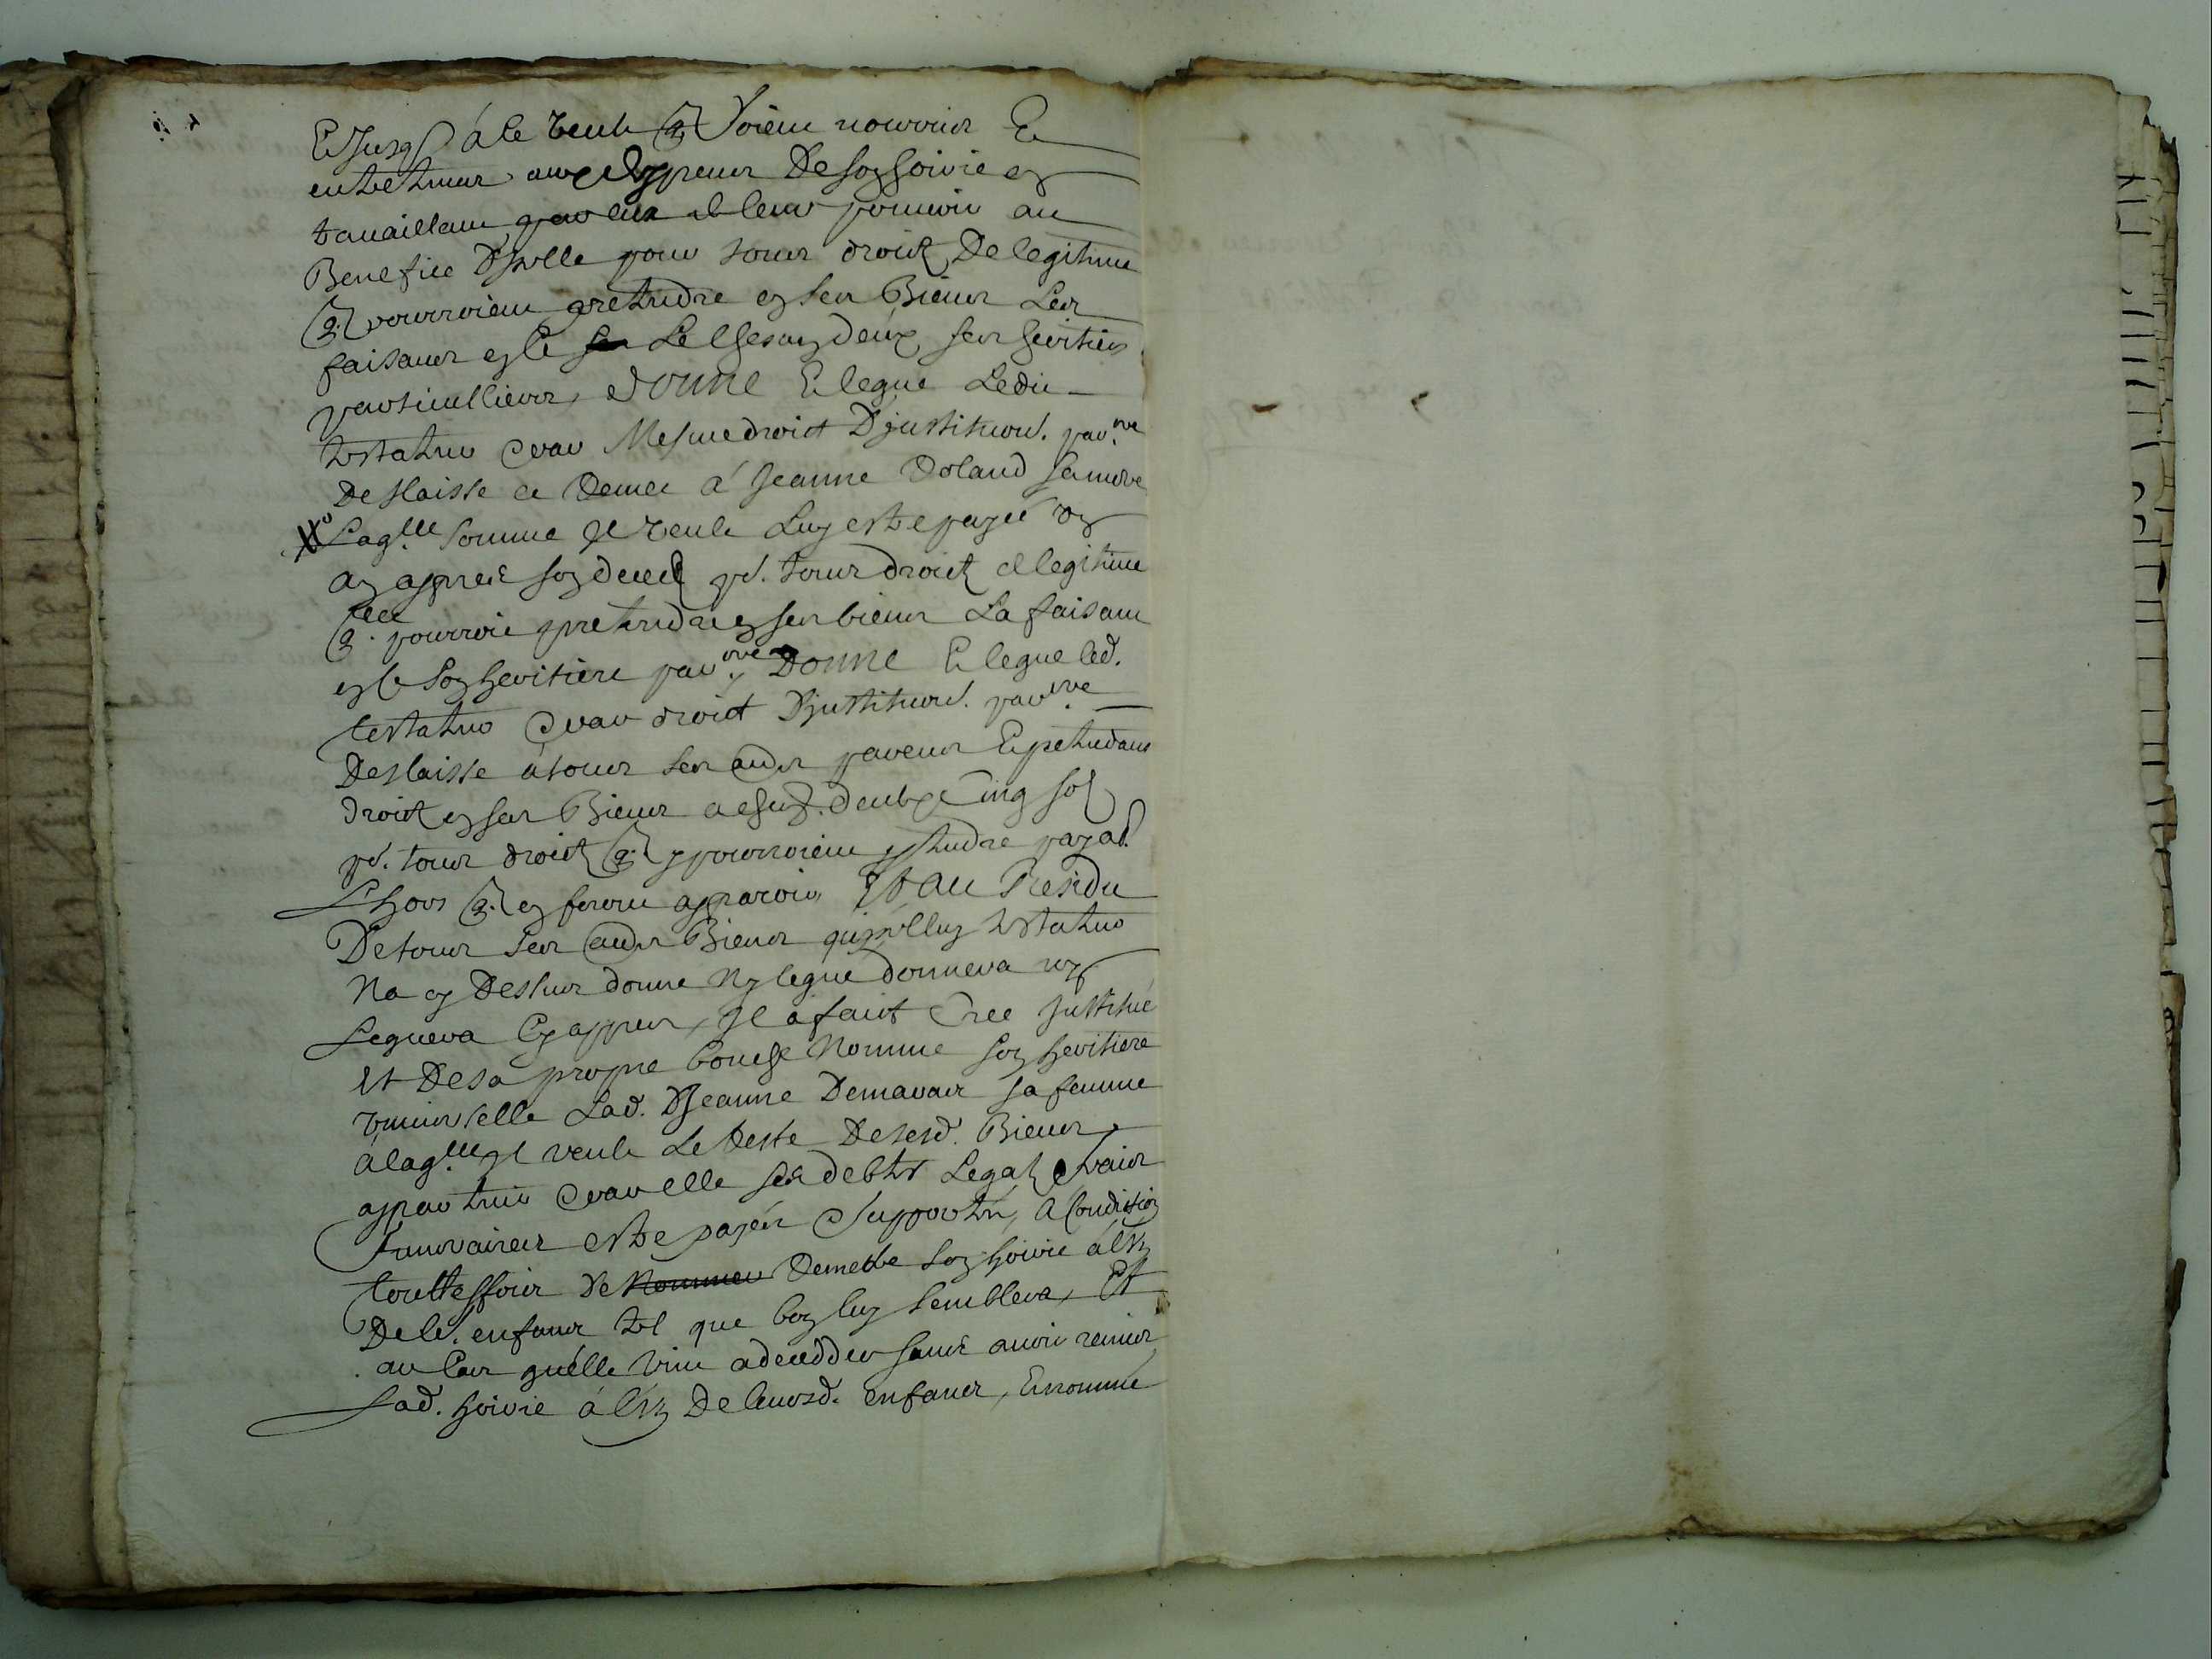 Et Jusq à ce veult q. soient nourris Et
entretenus aux despens De son hoirie en
travaillant par eux et leur pouvoir au
Benefice D'jcelle pour tous droictz De legitime
q. pourroient pretendre en ses Biens Les
faisant en ce Le chescung deux ses heritiers
particulliers, Donne Et legue Ledit
testateur Et par Mesme droict D'institution. par.re
Deslaisse a Jeanne Roland sa mere
Laq.lle somme Il veult Luy estre payée
an apres son deces p. tous droictz et legitime
q.lle pourroit pretendre en ses biens La faisant
en ce son heritiere par.re Donne Et legue led.
testateur Et par droict D'institution. par.re
Deslaisse à tous ses aues parens Et pretendans
droict en ses Biens a chung. deulx Cinq solz
p. tous droictz q. y pourroient pretendre payab.
Lhors q. en feront apparoir Et au Residu
De tous ses aues Biens qu'jcelluy testateur
Na cy Dessus donne Ny legue donnera ny
Leguera Cy appres, Il a faict Cree Institué
Et De sa propre bouche Nomme son heritiere
universelle Lad. Jeanne Demarais sa femme
à laq.lle Il veult Le Reste De sesd. Biens
appartenir Et par elle ses debtes Legatz frais
funeraires estre payés Et supportes, A Condition
touttesffois de Nommer Remettre son hoirie à l'un
De le. enfans tel que bon luy semblera, Et
au Cas qu'elle vint a deceder sans avoir remis
Lad. hoirie à l'un De leursd. enfans, Et nommé